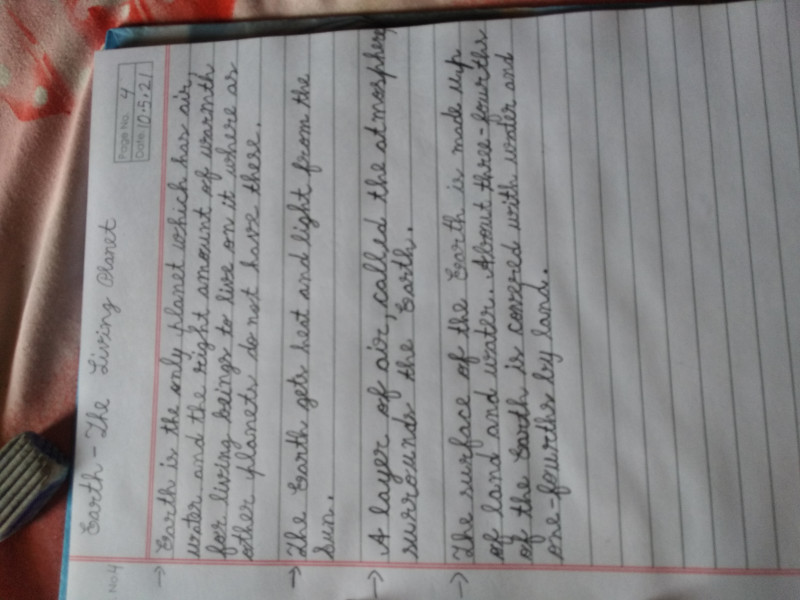 Page No. 4
Date 10.5.21
No 4
Earth - The Living Planet
→ Earth is the only planet which has air,
water and the right amount of warmth
for living beings to live on it where as
other planets do not have these.
→ The Earth gets heat and light from the
Sun.
→ A layer of air, called the atmosphere,
surrounds the Earth.
→ The surface of the Earth is made up
of land and water. About three-fourths
of the Earth is covered with water and
one-fourths by land.